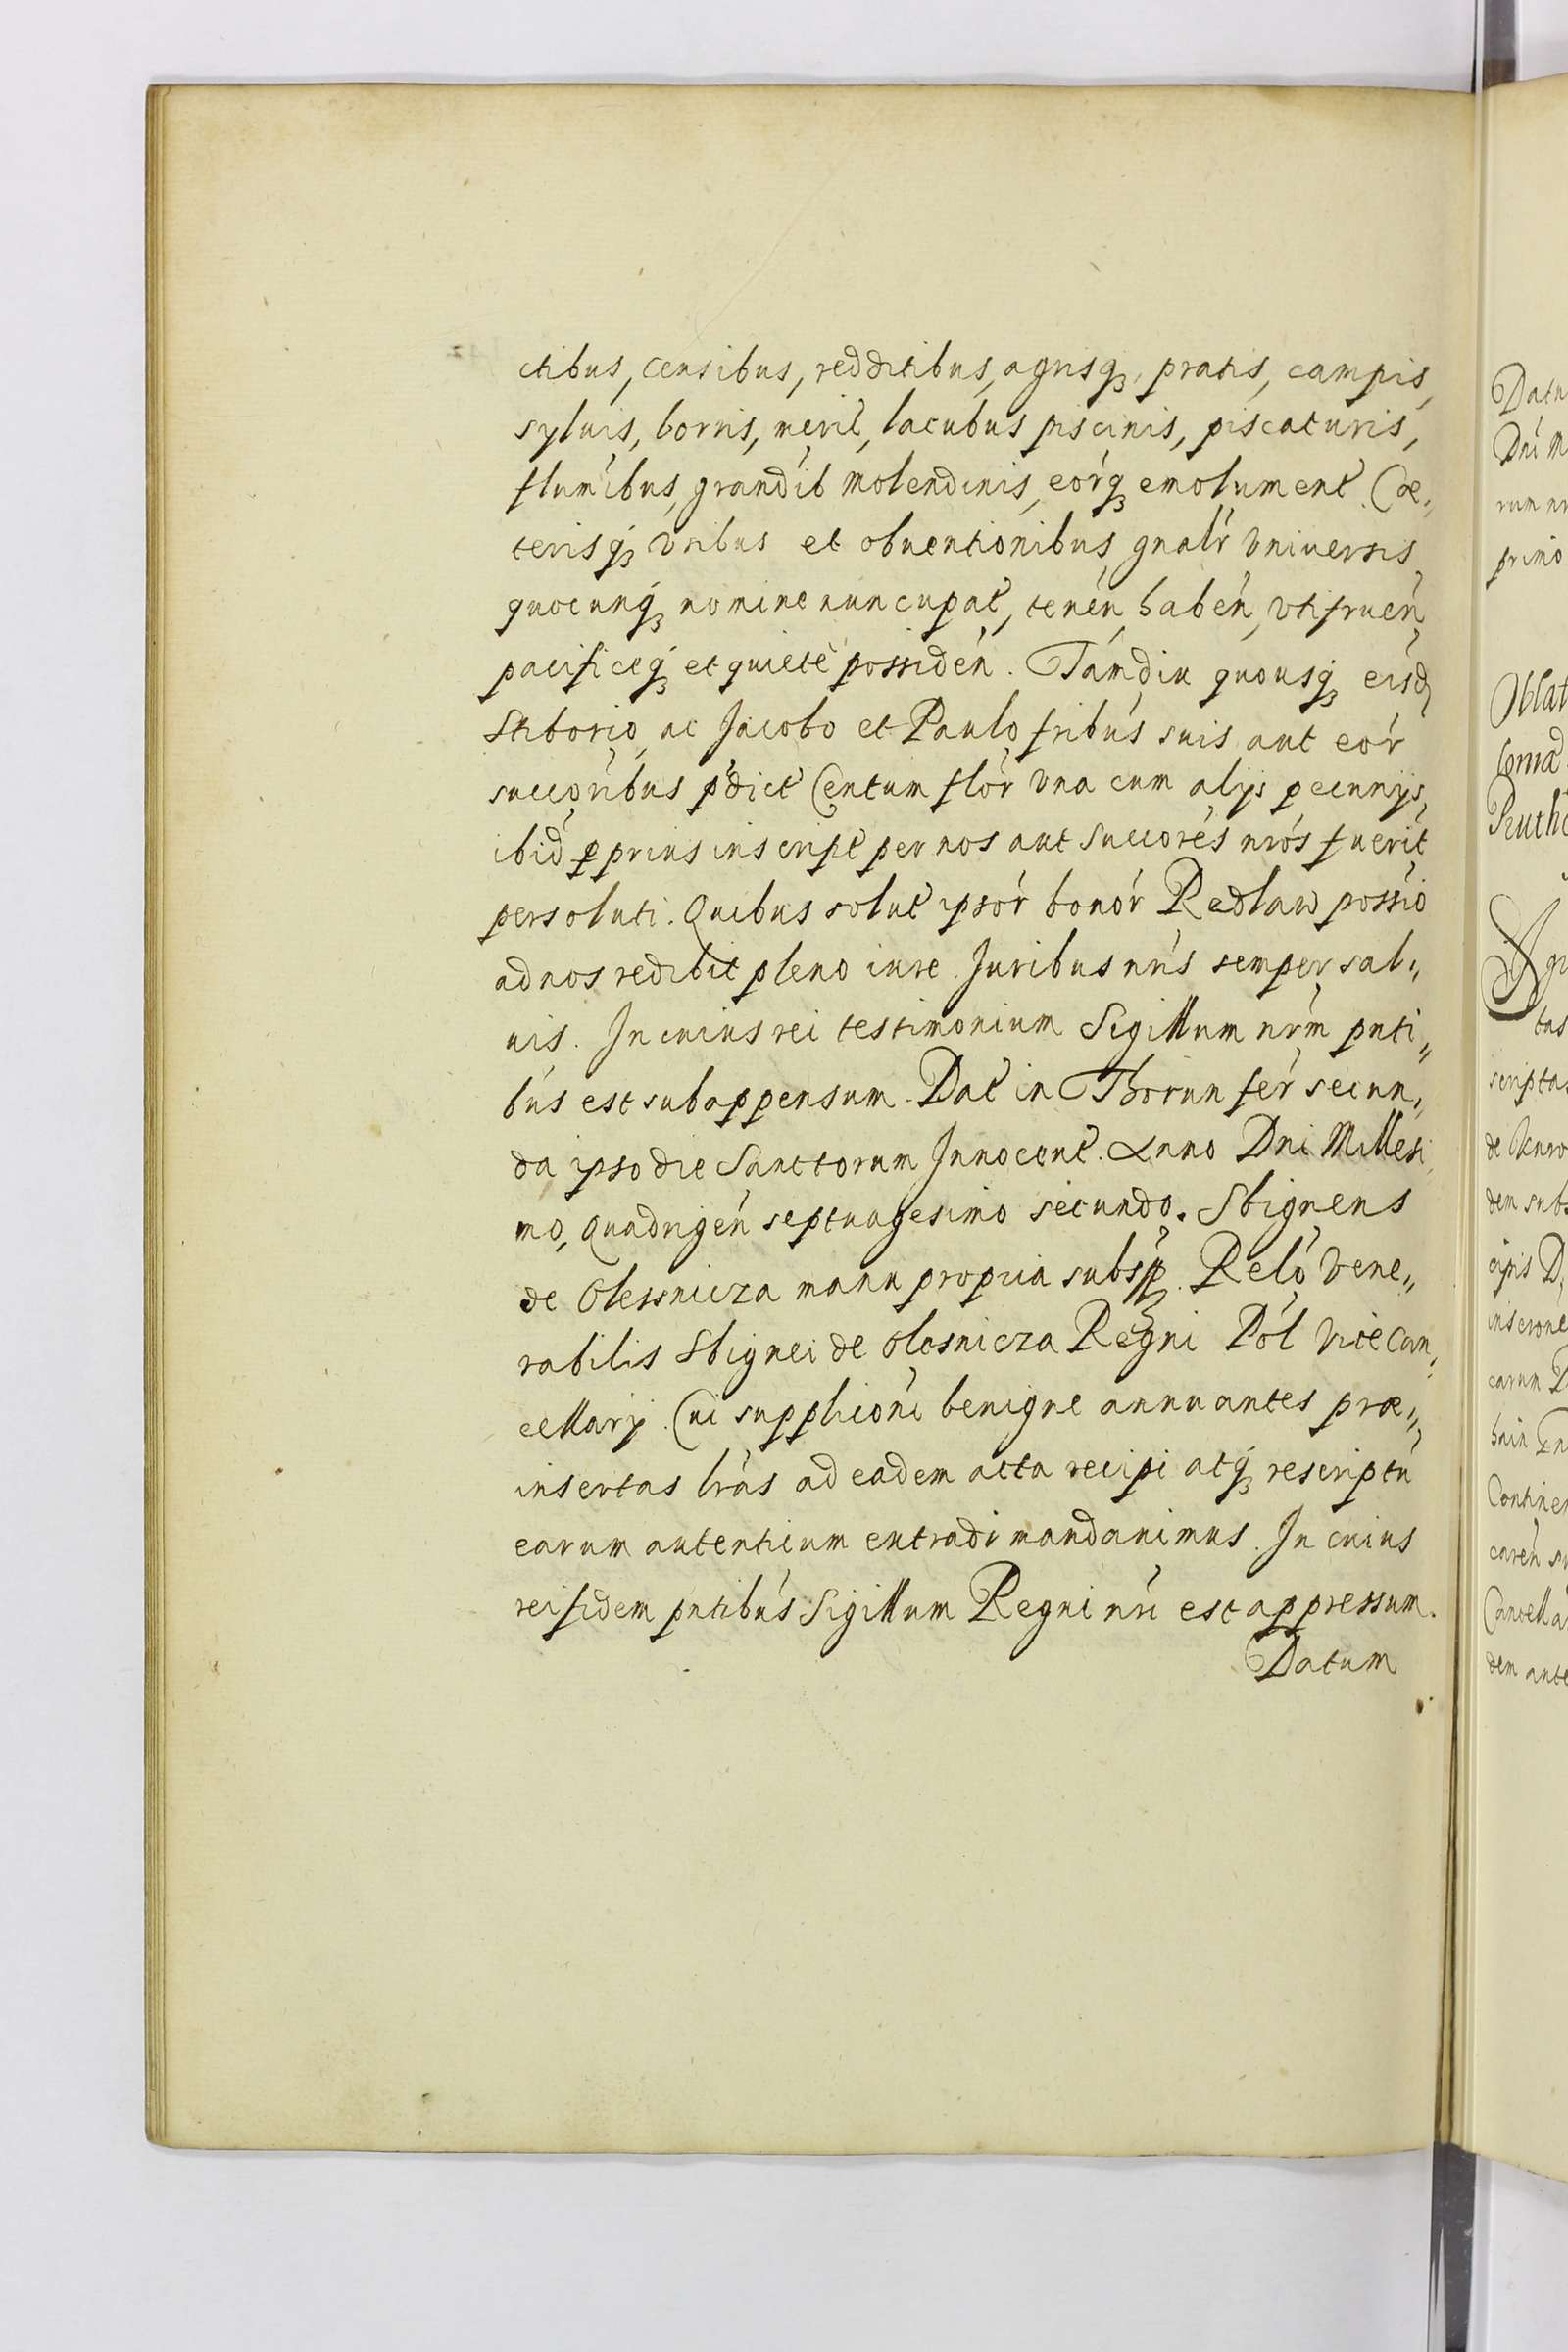 ctibus, censibus, redditibus, agrisq, pratis, campis,
syluis, borris, meric, lacubus piscinis, piscaturis,
flumibus, grandib molendinis, eorq emolument. Cæ„
terisq vtibus et obuentionibus gnalr vniuersis
quocunq nomine nuncupat, tenen, haben, vtifruen,
pacificeq et quiete possiden. Tamdiu quousq eisd
Stiborio, ac Jacobo et Paulo fribus suis aut eor
succoribus pdict Centum flor vna cum alijs pecunijs,
ibid p prius inscript per nos aut succores nros fuerit
persoluti. Quibus solut ipsor bonor Redlaw possio
ad nos redibit pleno iure. Juribus nris semper sal„
uis. In cuius rei testimonium Sigillum nrm pnti„
bus est subappensum. Dat in Thorun fer secun„
da ipso die Sanctorum Innocent. Anno Dni Millesi
mo, quadrigen septuagesimo secundo. Sbigneus
de Olessnicza manu propria subsp. Relo Vene„
rabilis Sbignei de Olesnicza Regni Pol Vice Can„
cellarij. Cui supplicioni benigne annuantes præ„
insertas lras ad eadem acta recipi atq rescriptu
earum autenticum extradi mandauimus. In cuius
rei fidem pntibus Sigillum Regni nri est appressum.
Datum
Datu
Dni M
rum nr
primo
Oblat
Peuth
tus
scripta
dem subs
cipis D
carum D
Continen
caren su
Cancella
dem aute